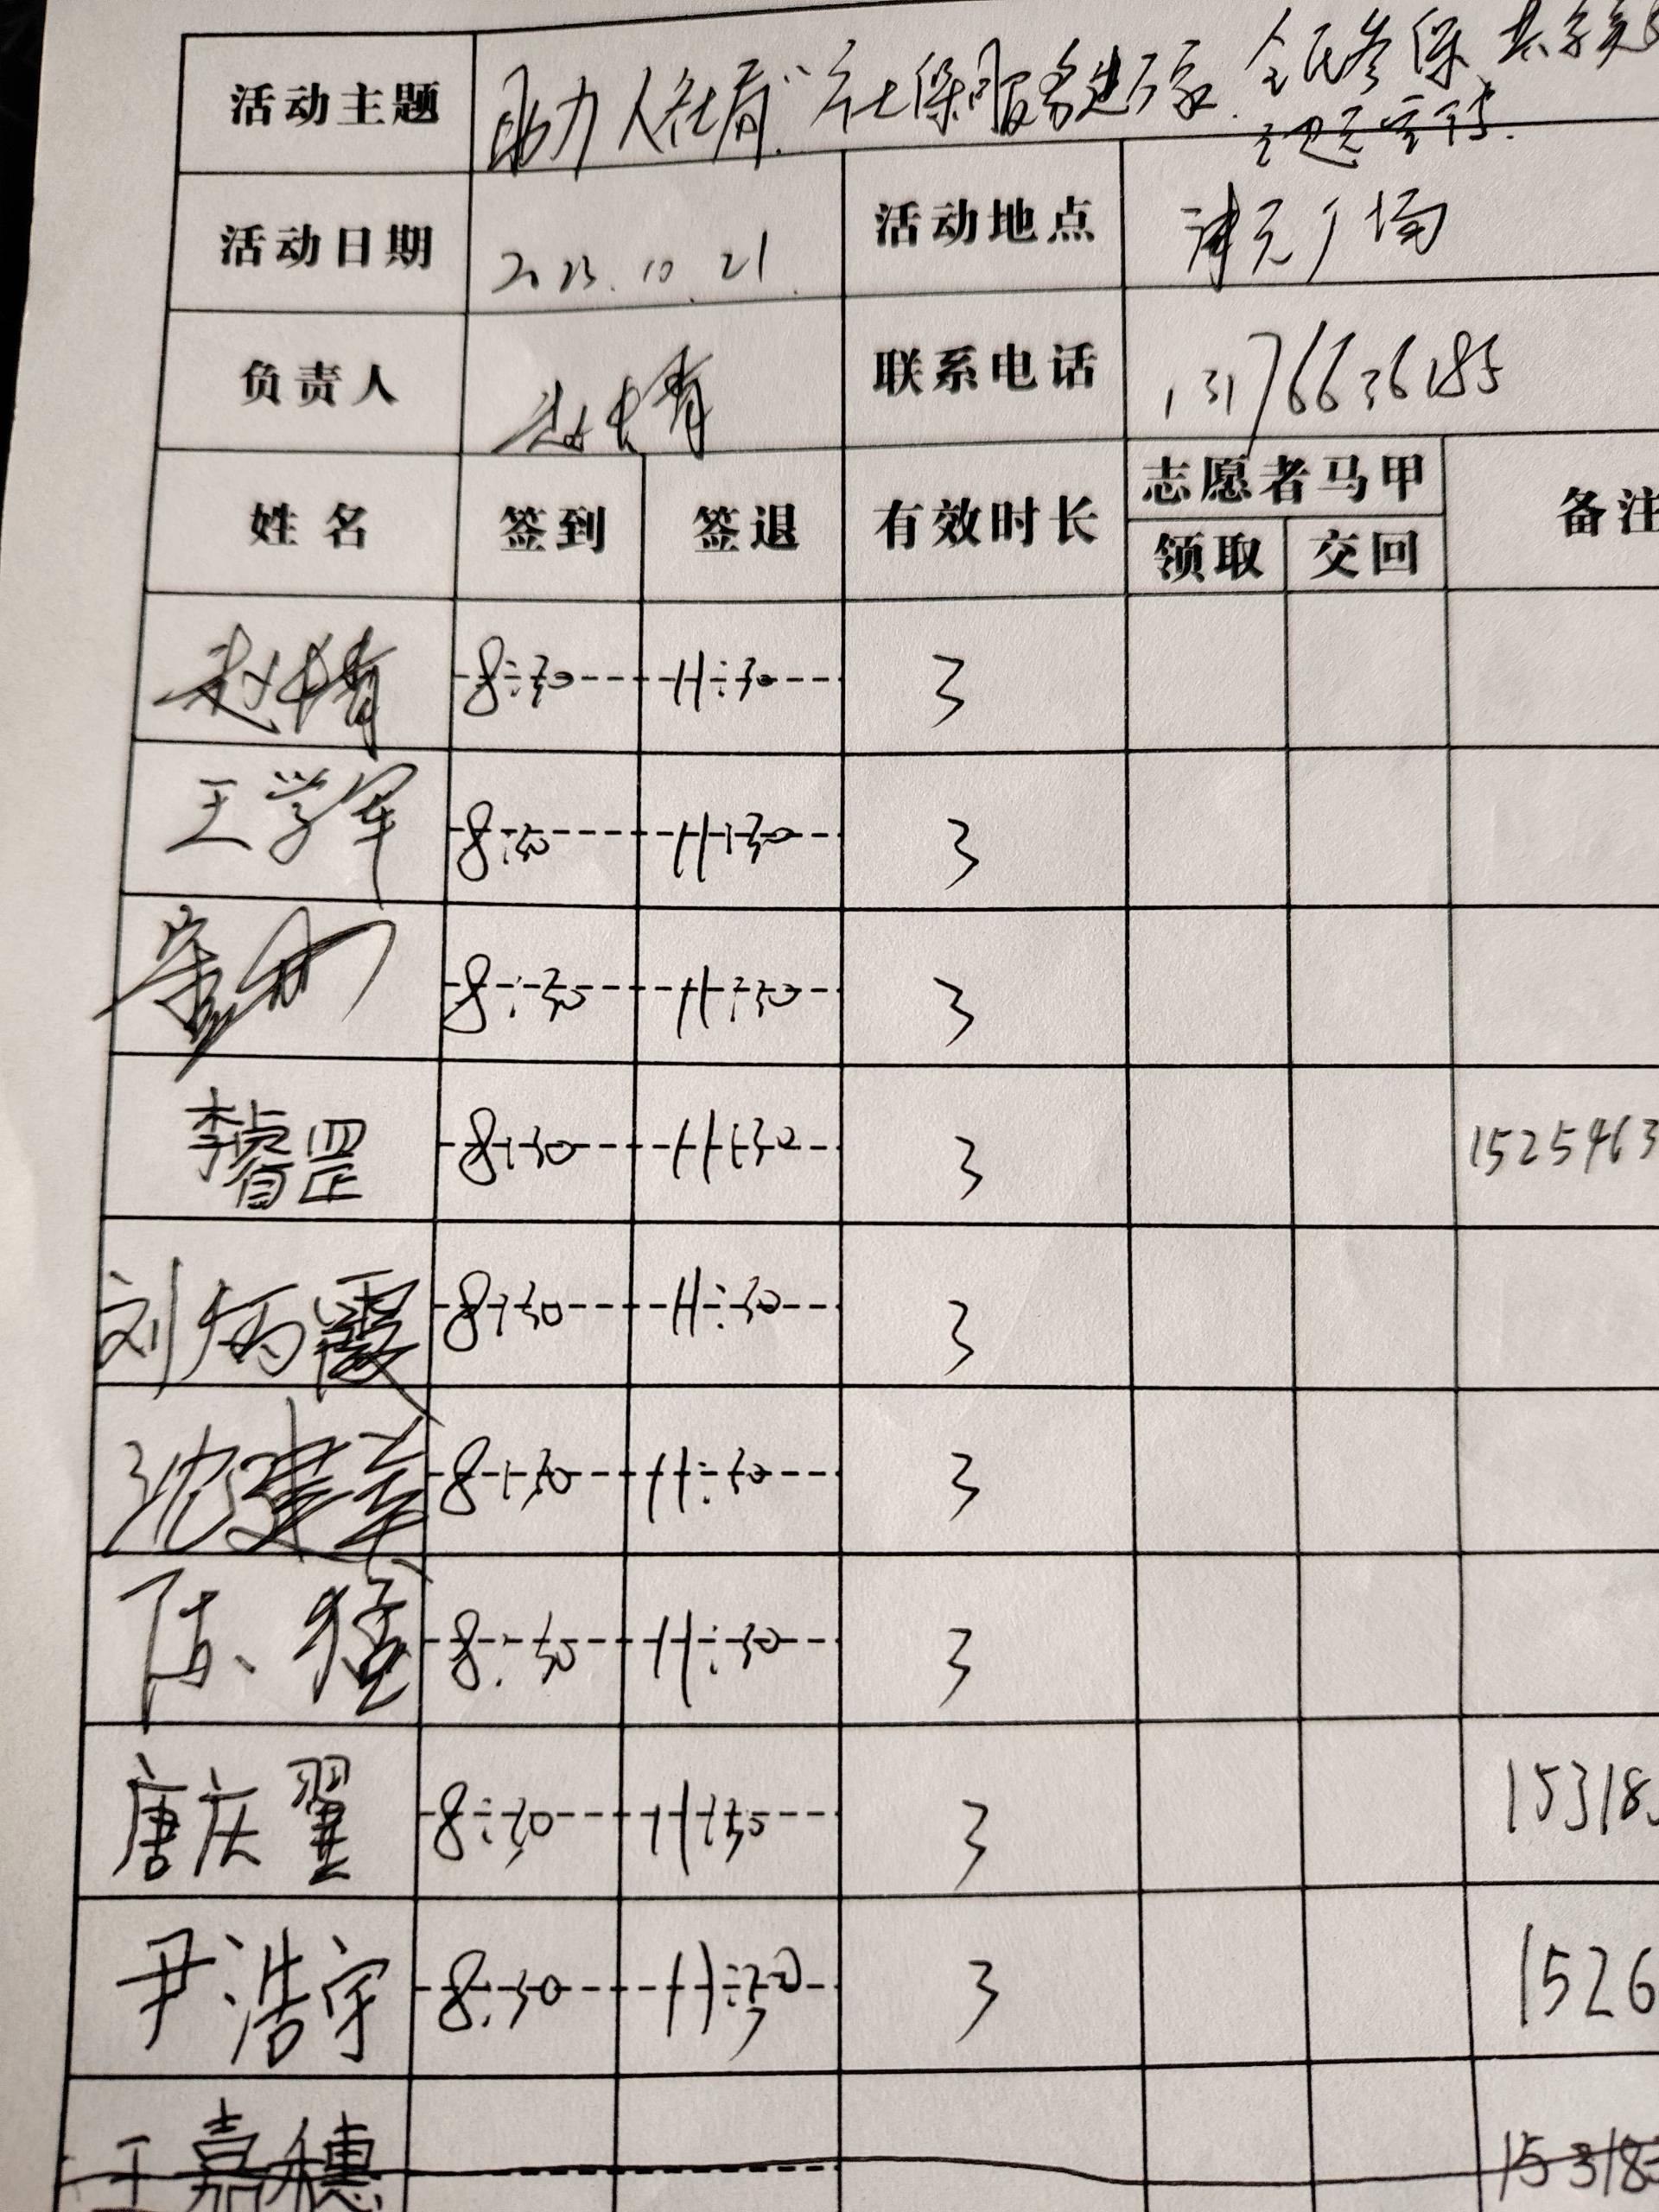 活动主题 助力人社局"社保服务进万家 全民参保 共享
主题宣传.
活动日期 2023.10.21. 活动地点 津元广场
负责人 联系电话 13176636185
姓名 签到 签退 有效时长 志愿者马甲 备注
领取 交回
赵婧 8:30 11:30 3
王学军 8:30 11:30 3
8:30 11:30 3
李 罡 8:30 11:30 3 1525463
刘炳霞 8:30 11:30 3
沈建 8:30 11:30 3
陈猛 8:30 11:30 3
唐庆翼 8:30 11:30 3 15318
尹浩宇 8:30 11:30 3 1526
王嘉穗 15318